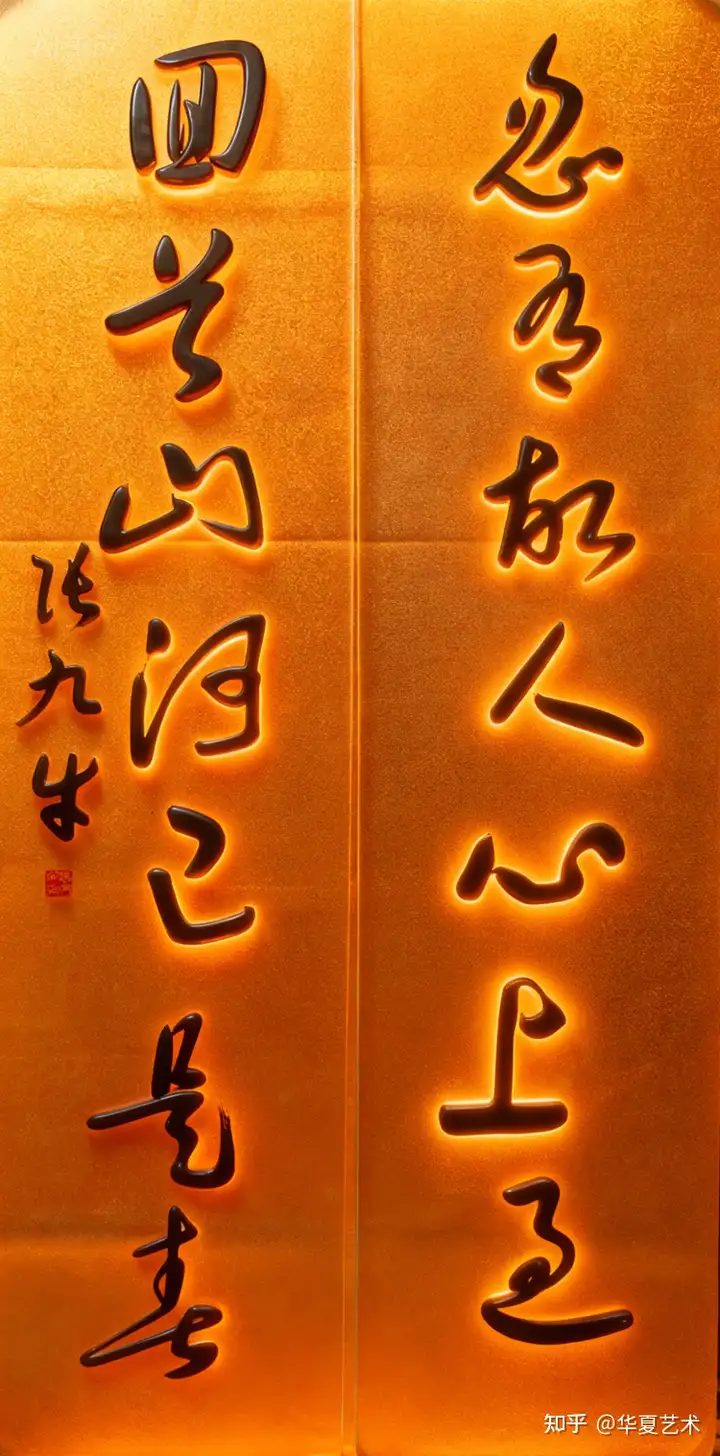 忽有故人心上过
回首山河已是春
张九牛
知乎 @华夏艺术